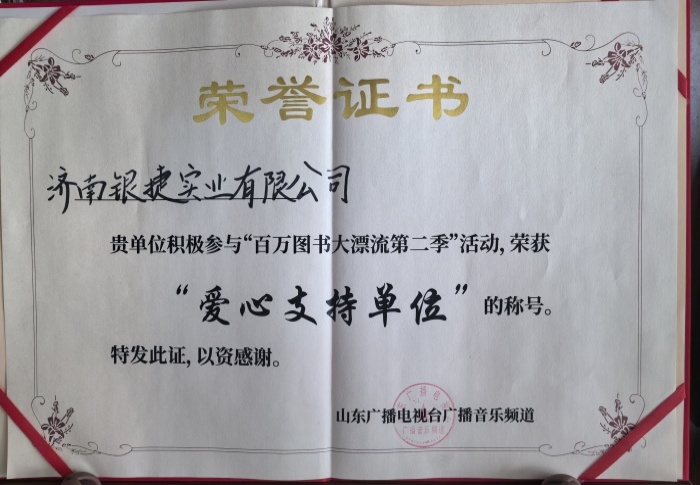 荣誉证书
济南银捷实业有限公司
贵单位积极参与“百万图书大漂流第二季”活动，荣获
“爱心支持单位”的称号。
特发此证，以资感谢。
山东广播电视台广播音乐频道
广播音乐频道